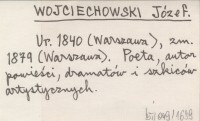 WOJCIECHOWSKI Józef.
Ur. 1840 (Warszawa), zm.
1879 (Warszawa). Poeta, autor
powieści, dramatów i szkiców
artystycznych.